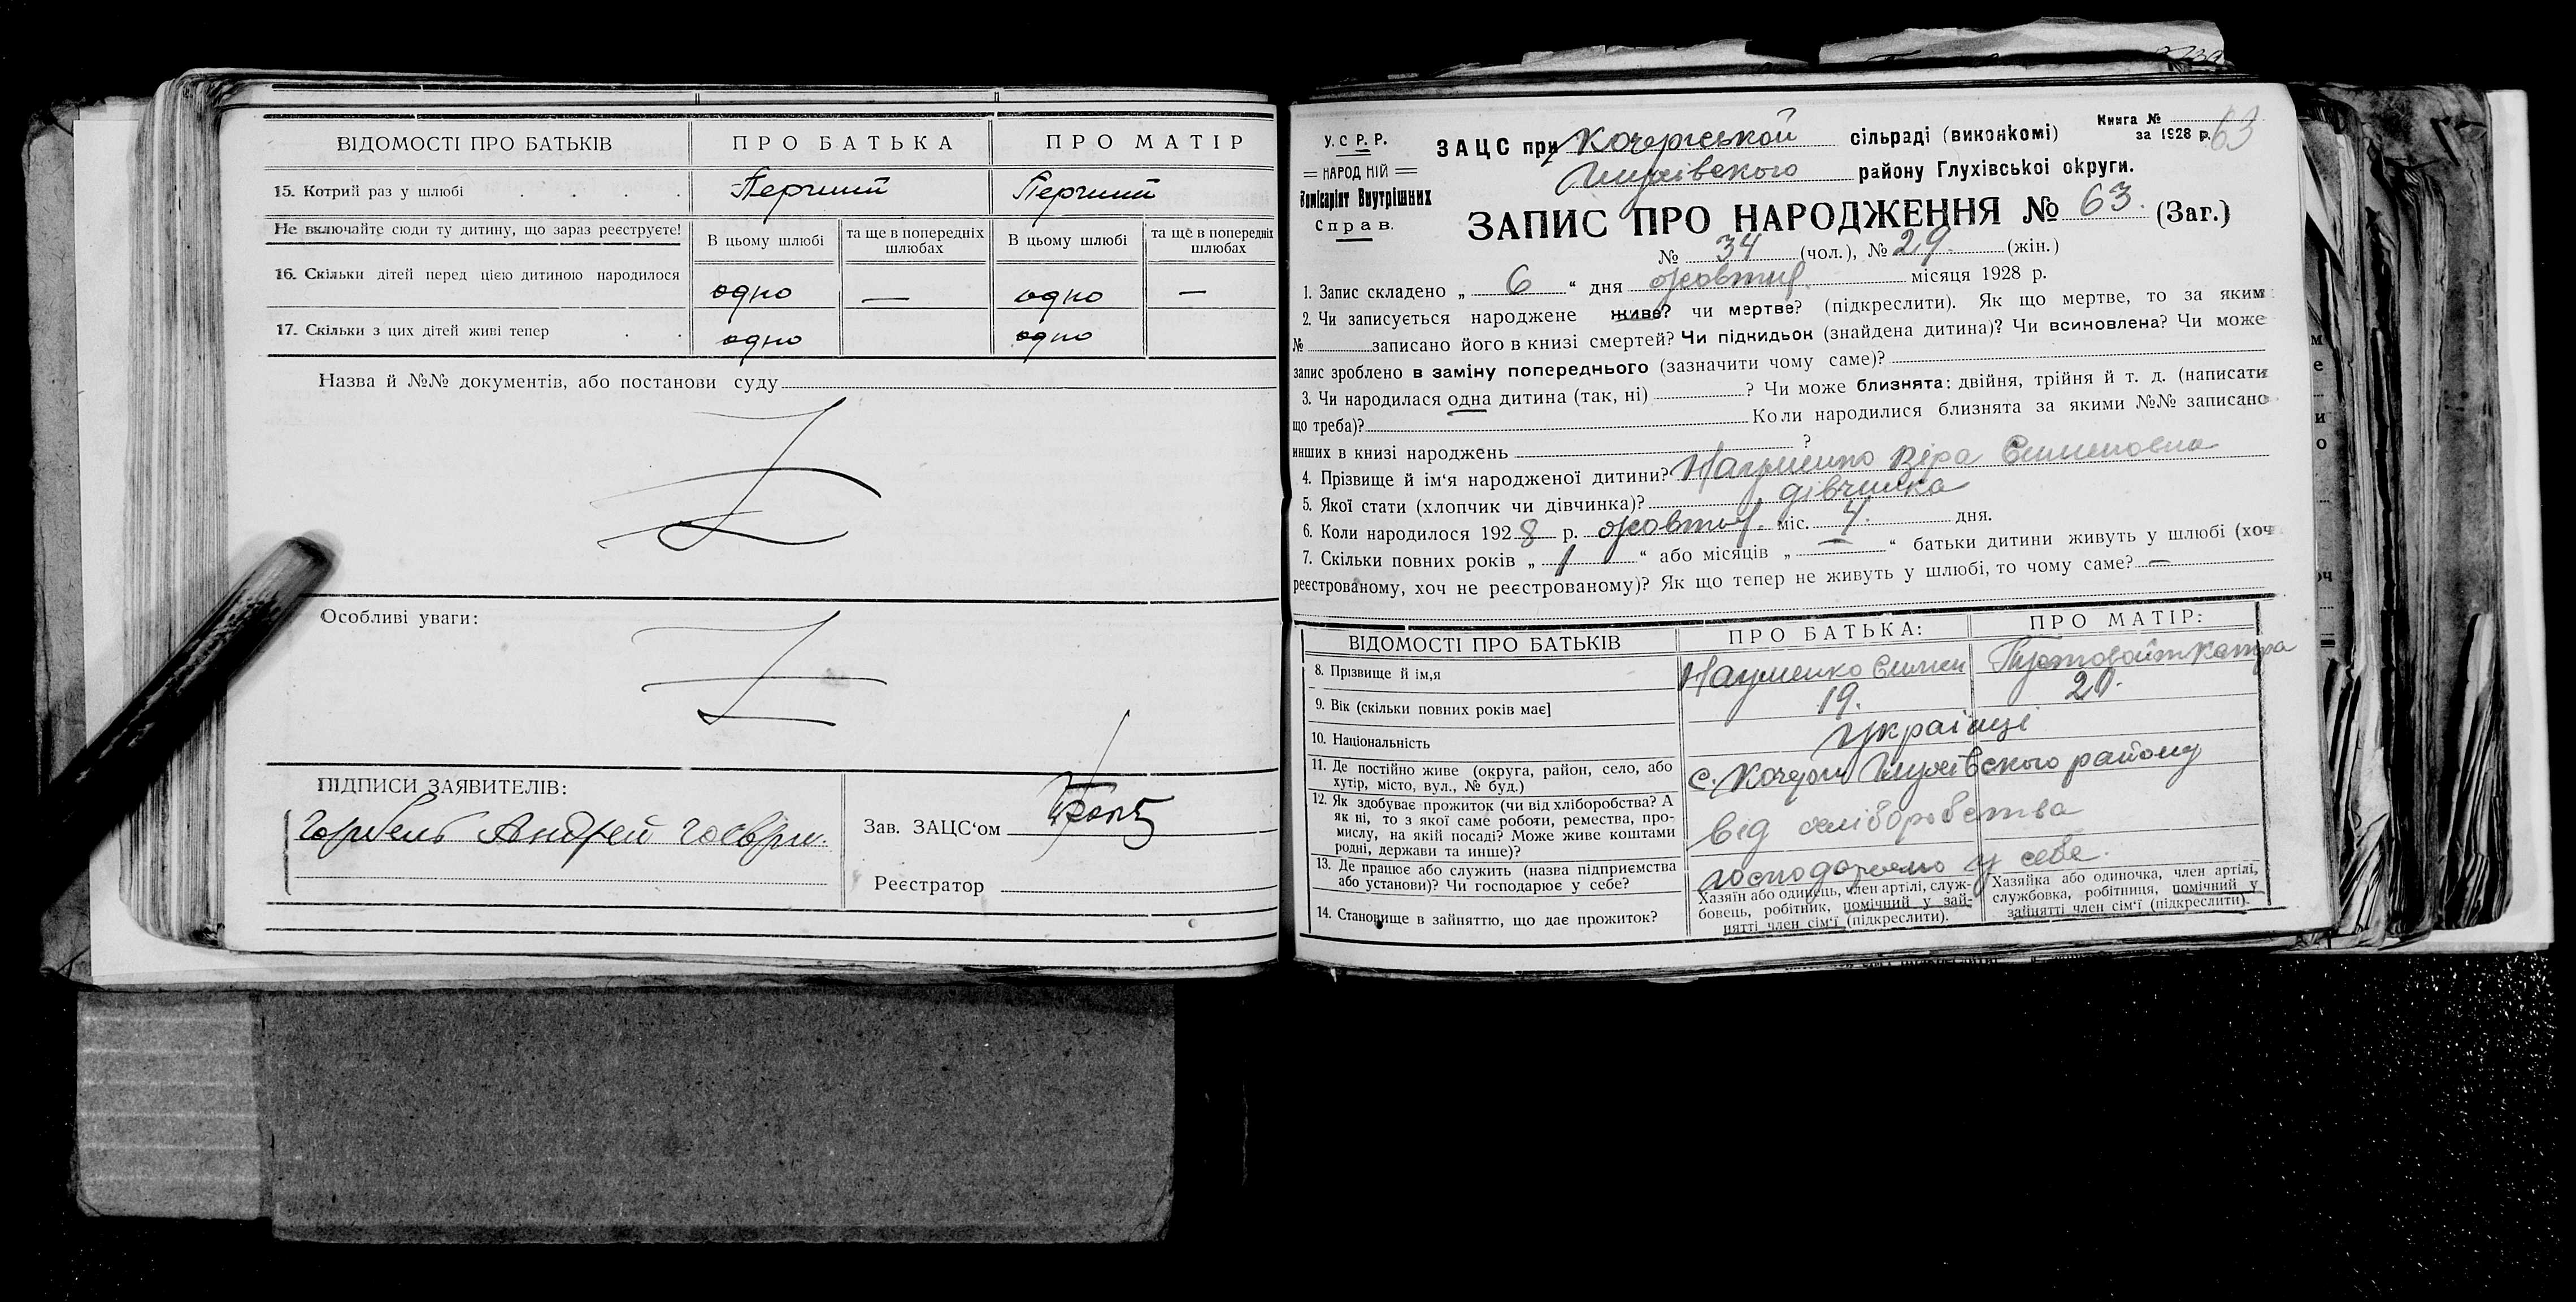 ВІДОМОСТІ ПРО БАТЬКІВ ПРО БАТЬКА ПРО МАТІР
15. Котрий раз у шлюбі . . . . Перший Перший
Не включайте сюди ту дитину, що зараз реєструєте!
В цьому шлюбі та ще в попередніх шлюбах В цьому шлюбі та ще в попередніх шлюбах
16. Скільки дітей перед цією дитиною народилося одно — одно —
17. Скільки з цих дітей живі тепер . . одно одно
Назва й №№ документів, або постанови суду
Z
Особливі уваги:
Z
ПІДПИСИ ЗАЯВИТЕЛІВ:
Горбель Андрей
Зав. ЗАЦС‘ом
Реєстратор
У. С Р. Р.
НАРОДНІЙ
Комісаріят Внутрішних
Справ.
Книга №
за 1928 р. 63
ЗАЦС при Кочержській сільраді (виконкомі)
Глухівского району Глухівської округи.
ЗАПИС ПРО НАРОДЖЕННЯ № 63. (Заг.)
№ 34 (чол.), № 29. (жін.)
1. Запис складено „ 6 “ дня жовтня місяця 1928 р.
2. Чи записується народжене живе? чи мертве? (підкреслити). Як що мертве, то за яким
№ записано його в книзі смертей? Чи підкидьок (знайдена дитина)? Чи всиновлена? Чи може
запис зроблено в заміну попереднього (зазначити чому саме)?
3. Чи народилася одна дитина (так, ні) ? Чи може близнята: двійня, трійня й т. д. (написати
що треба)? Коли народилися близнята за якими №№ записано
инших в книзі народжень ?
4. Прізвище й ім‘я народженої дитини? Науменко Віра Сименовна
5. Якої стати (хлопчик чи дівчинка)? дівчинка
6. Коли народилося 1928 р. жовтня міс. 4. дня.
7. Скільки повних років „ 1 “ або місяців „ — “ батьки дитини живуть у шлюбі (хоч
реєстрованому, хоч не реєстрованому)? Як що тепер не живуть у шлюбі, то чому саме? —
ВІДОМОСТІ ПРО БАТЬКІВ ПРО БАТЬКА: ПРО МАТІР:
8. Прізвище й ім,я Науменко Симен Пустовойт Катра
9. Вік (скільки повних років має] 19. 20.
10. Національність українці
11. Де постійно живе (округа, район, село, або
хутір, місто, вул., № буд.) с. Кочерги Глухівского району
12. Як здобуває прожиток (чи від хліборобства? А
як ні, то з якої саме роботи, ремества, про-
мислу, на якій посаді? Може живе коштами
родні, держави та инше)? від хліборобства
13. Де працює або служить (назва підприємства
або установи)? Чи господарює у себе? господарює у себе.
14. Становище в зайняттю, що дає прожиток?
Хазяїн або одинець, член артілі, служ-
бовець, робітник, помічний у зай-
нятті член сім‘ї (підкреслити).
Хазяйка або одиночка, член артілі,
службовка, робітниця, помічний у
зайнятті член сім‘ї (підкреслити).